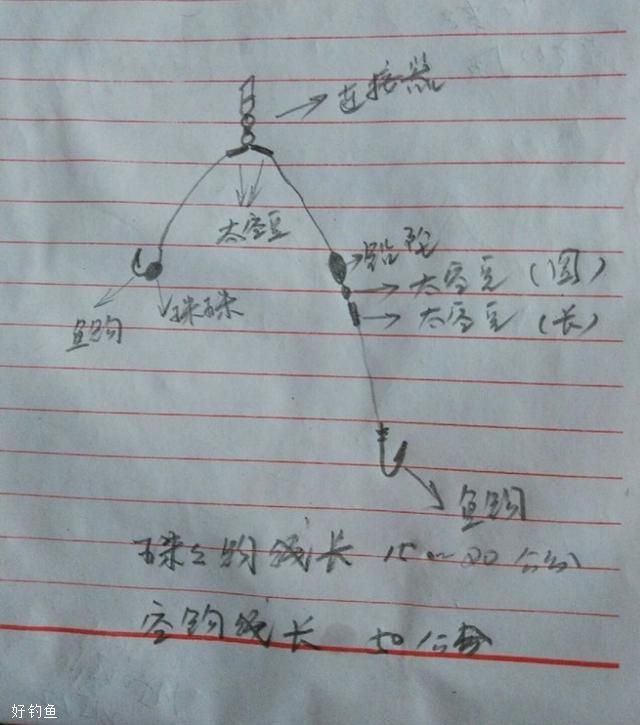 连接器
太空豆
铅砣
太空豆（圆）
太空豆（长）
鱼钩
珠珠
鱼钩
珠之钩线长 15~20公分
空钩线长 50公分
好钓鱼